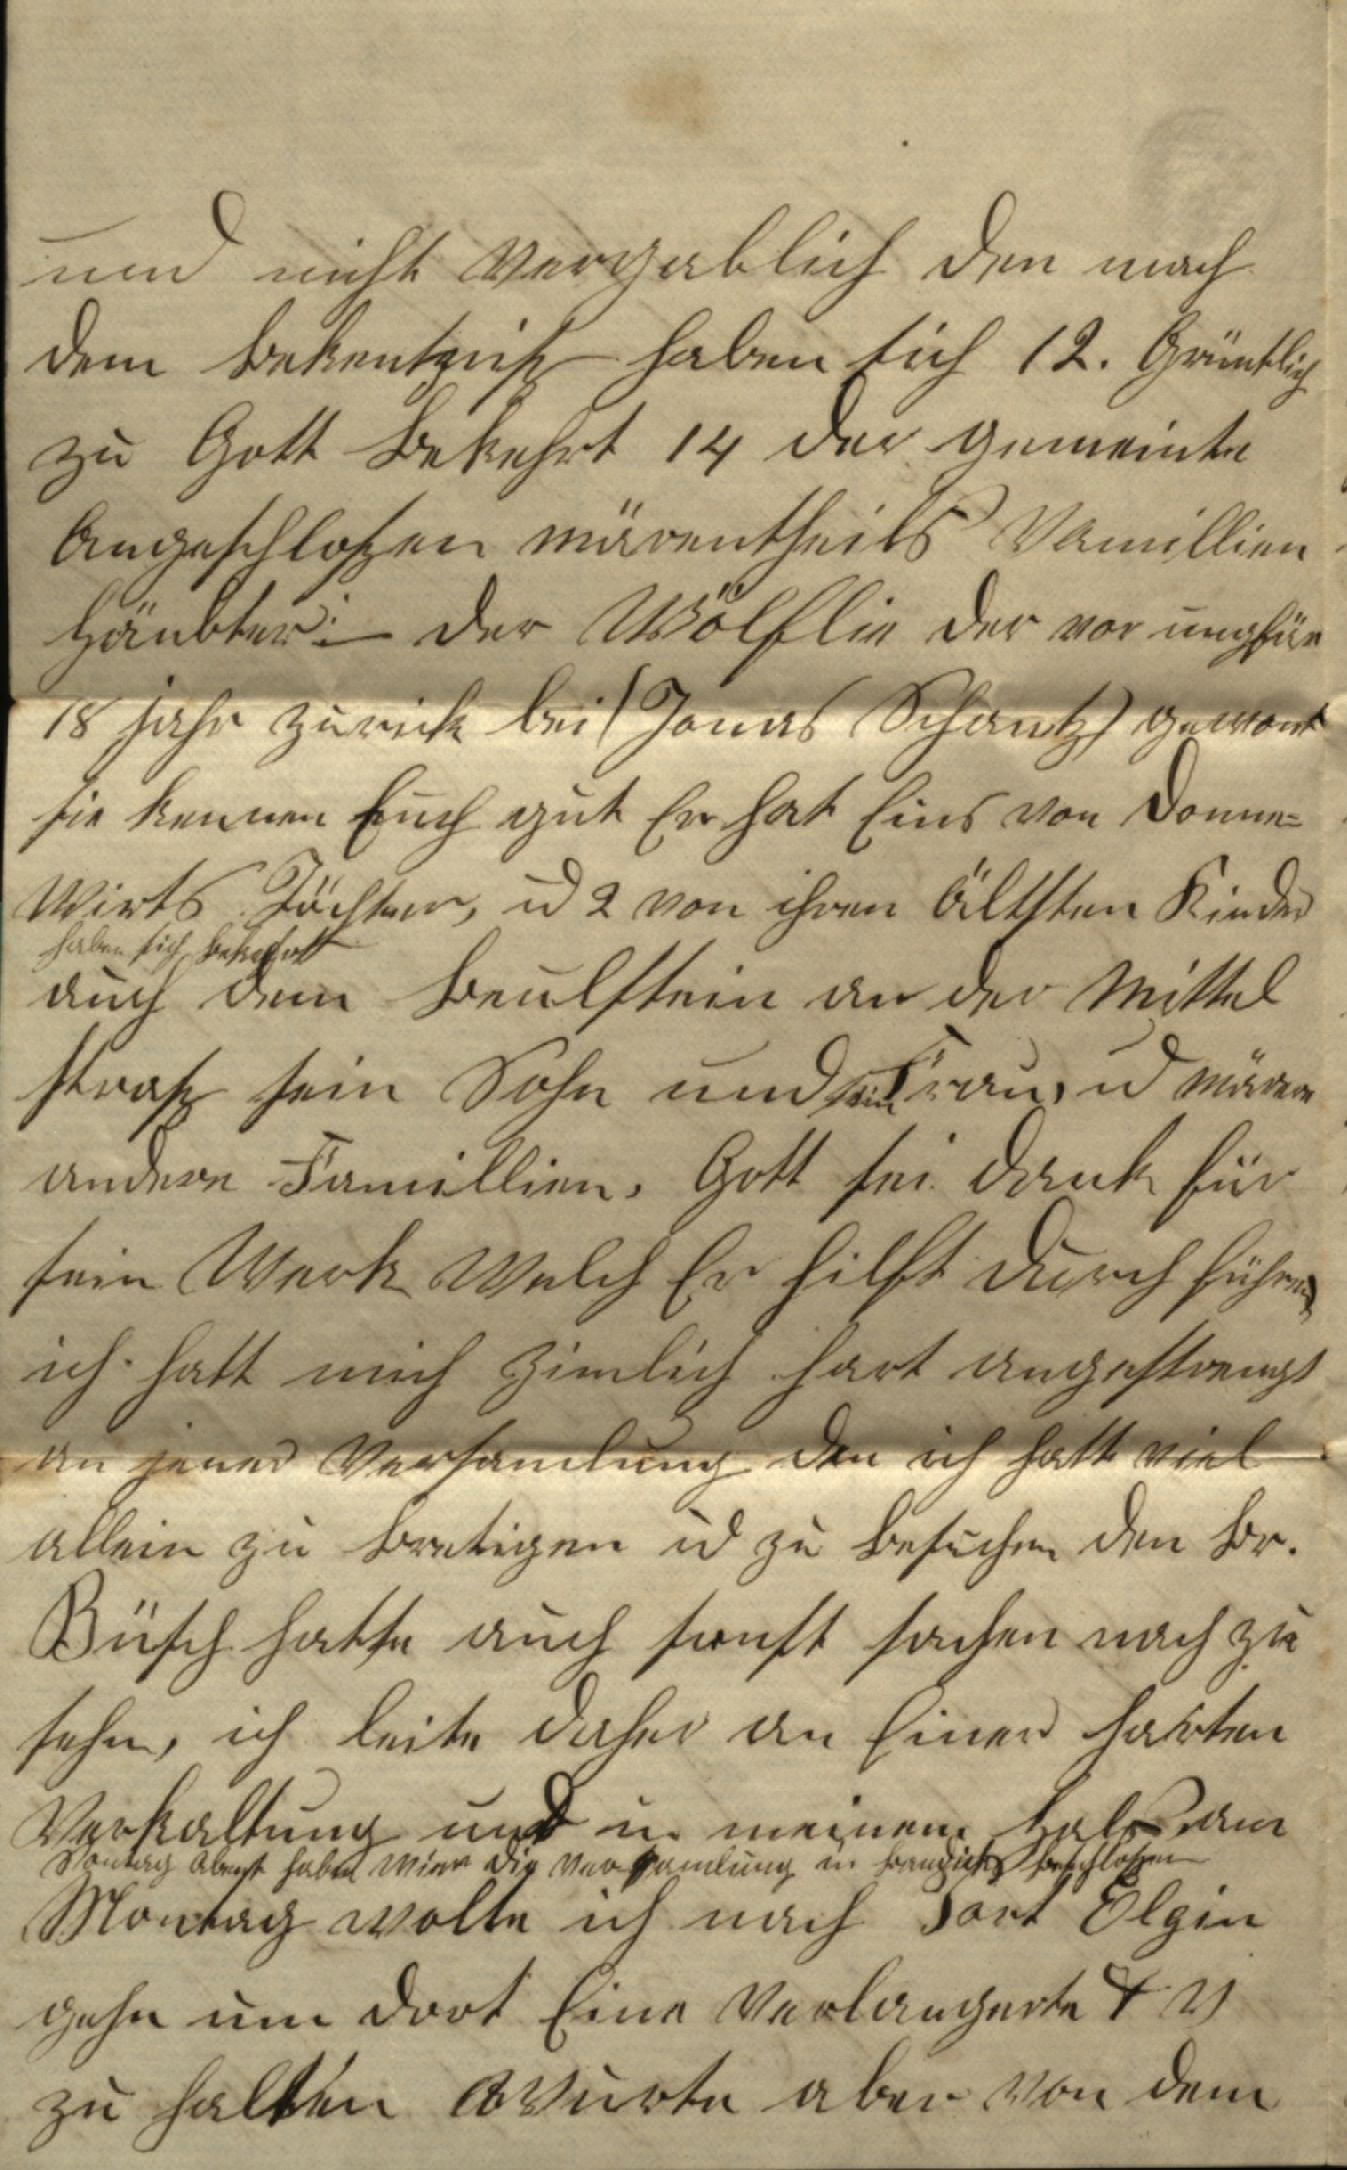 und nicht Vergeblich den nach
dem Bekentniß haben sich 12. Gründtlich
zu Gott Bekehrt 14 der gemeinte
Angeschloßen märentheils Vamillien
Häubter:– der Wölflie der vor ungfär
18 jahr zurick bei (Jonas Schantz) gewont
sie kennen Euch gut Er hat Eins von Donne=
Wirts Töchter, ud 2 von ihren Ältsten Kinder
haben sich bekehrt
auch dem Beulstein an der Mittel
straß sein Sohn und sein Frau, ud märere
andere Famillien. Gott sei dank für
sein Werk Welch Er hilft durch führen
ich hatt mich zimlich hart angestrengt
an jener Versamlung den ich hatt viel
allein zu Bretigen ud zu Besuchen den Br.
Büsch hatte auch sonst sachen nach zu
sehn, ich leite daher an Einer harten
Verkaltung und in meinem Hals am
Sontag Abent haben Wier die Versamlung in beschloßen
Montag wolte ich nach Port Elgin
gehn um dort Eine Verlangerte V
zu halten Wurte aber von dem